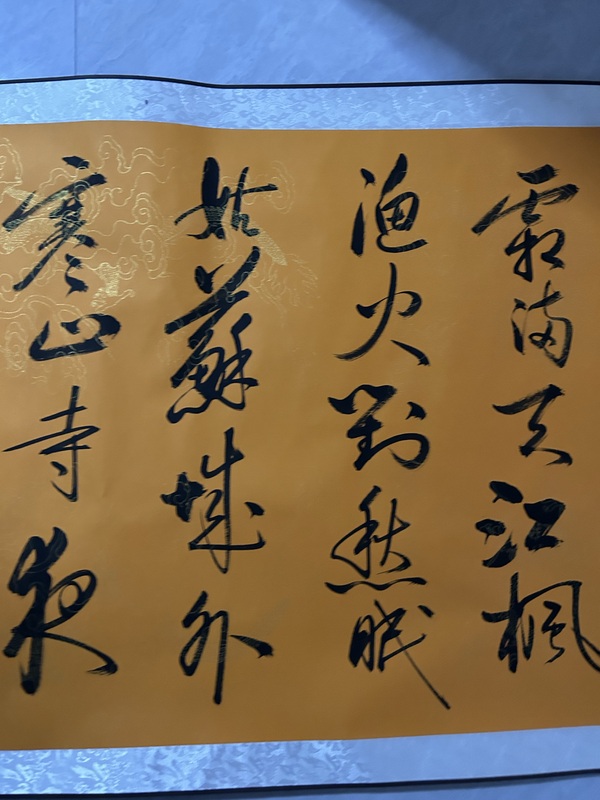 霜满天江楓
渔火對愁眠
姑蘇城外
寒山寺夜